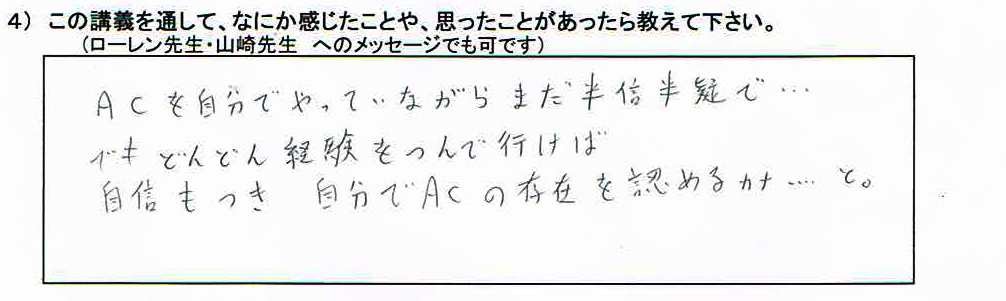 4) この講義を通して、なにか感じたことや、思ったことがあったら教えて下さい。
(ローレン先生・山崎先生 へのメッセージでも可です)
ACを自分でやっていながらまだ半信半疑で…
でもどんどん経験をつんで行けば
自信もつき 自分でACの存在を認めるカナ……と。